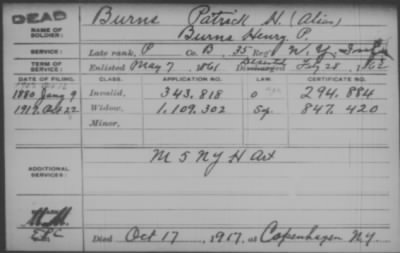 DEAD
NAME OF SOLDIER: Burns Patrick H. (Alias)
Burns Henry P.
SERVICE: Late rank, P Co. B, 35 Reg't N.Y. Inf
TERM OF SERVICE: Enlisted May 7, 1861 Discharged Feby 28, 1862
DATE OF FILING. CLASS. APPLICATION NO. LAW. CERTIFICATE NO.
1880 Jany 9 Invalid, 343.818 294.884
1917. Oct 22 Widow, 1,109.302 847.420
Minor,
ADDITIONAL SERVICES: M 5 NY H Art
Died Oct 17, 1917, at Copenhagen N.Y.